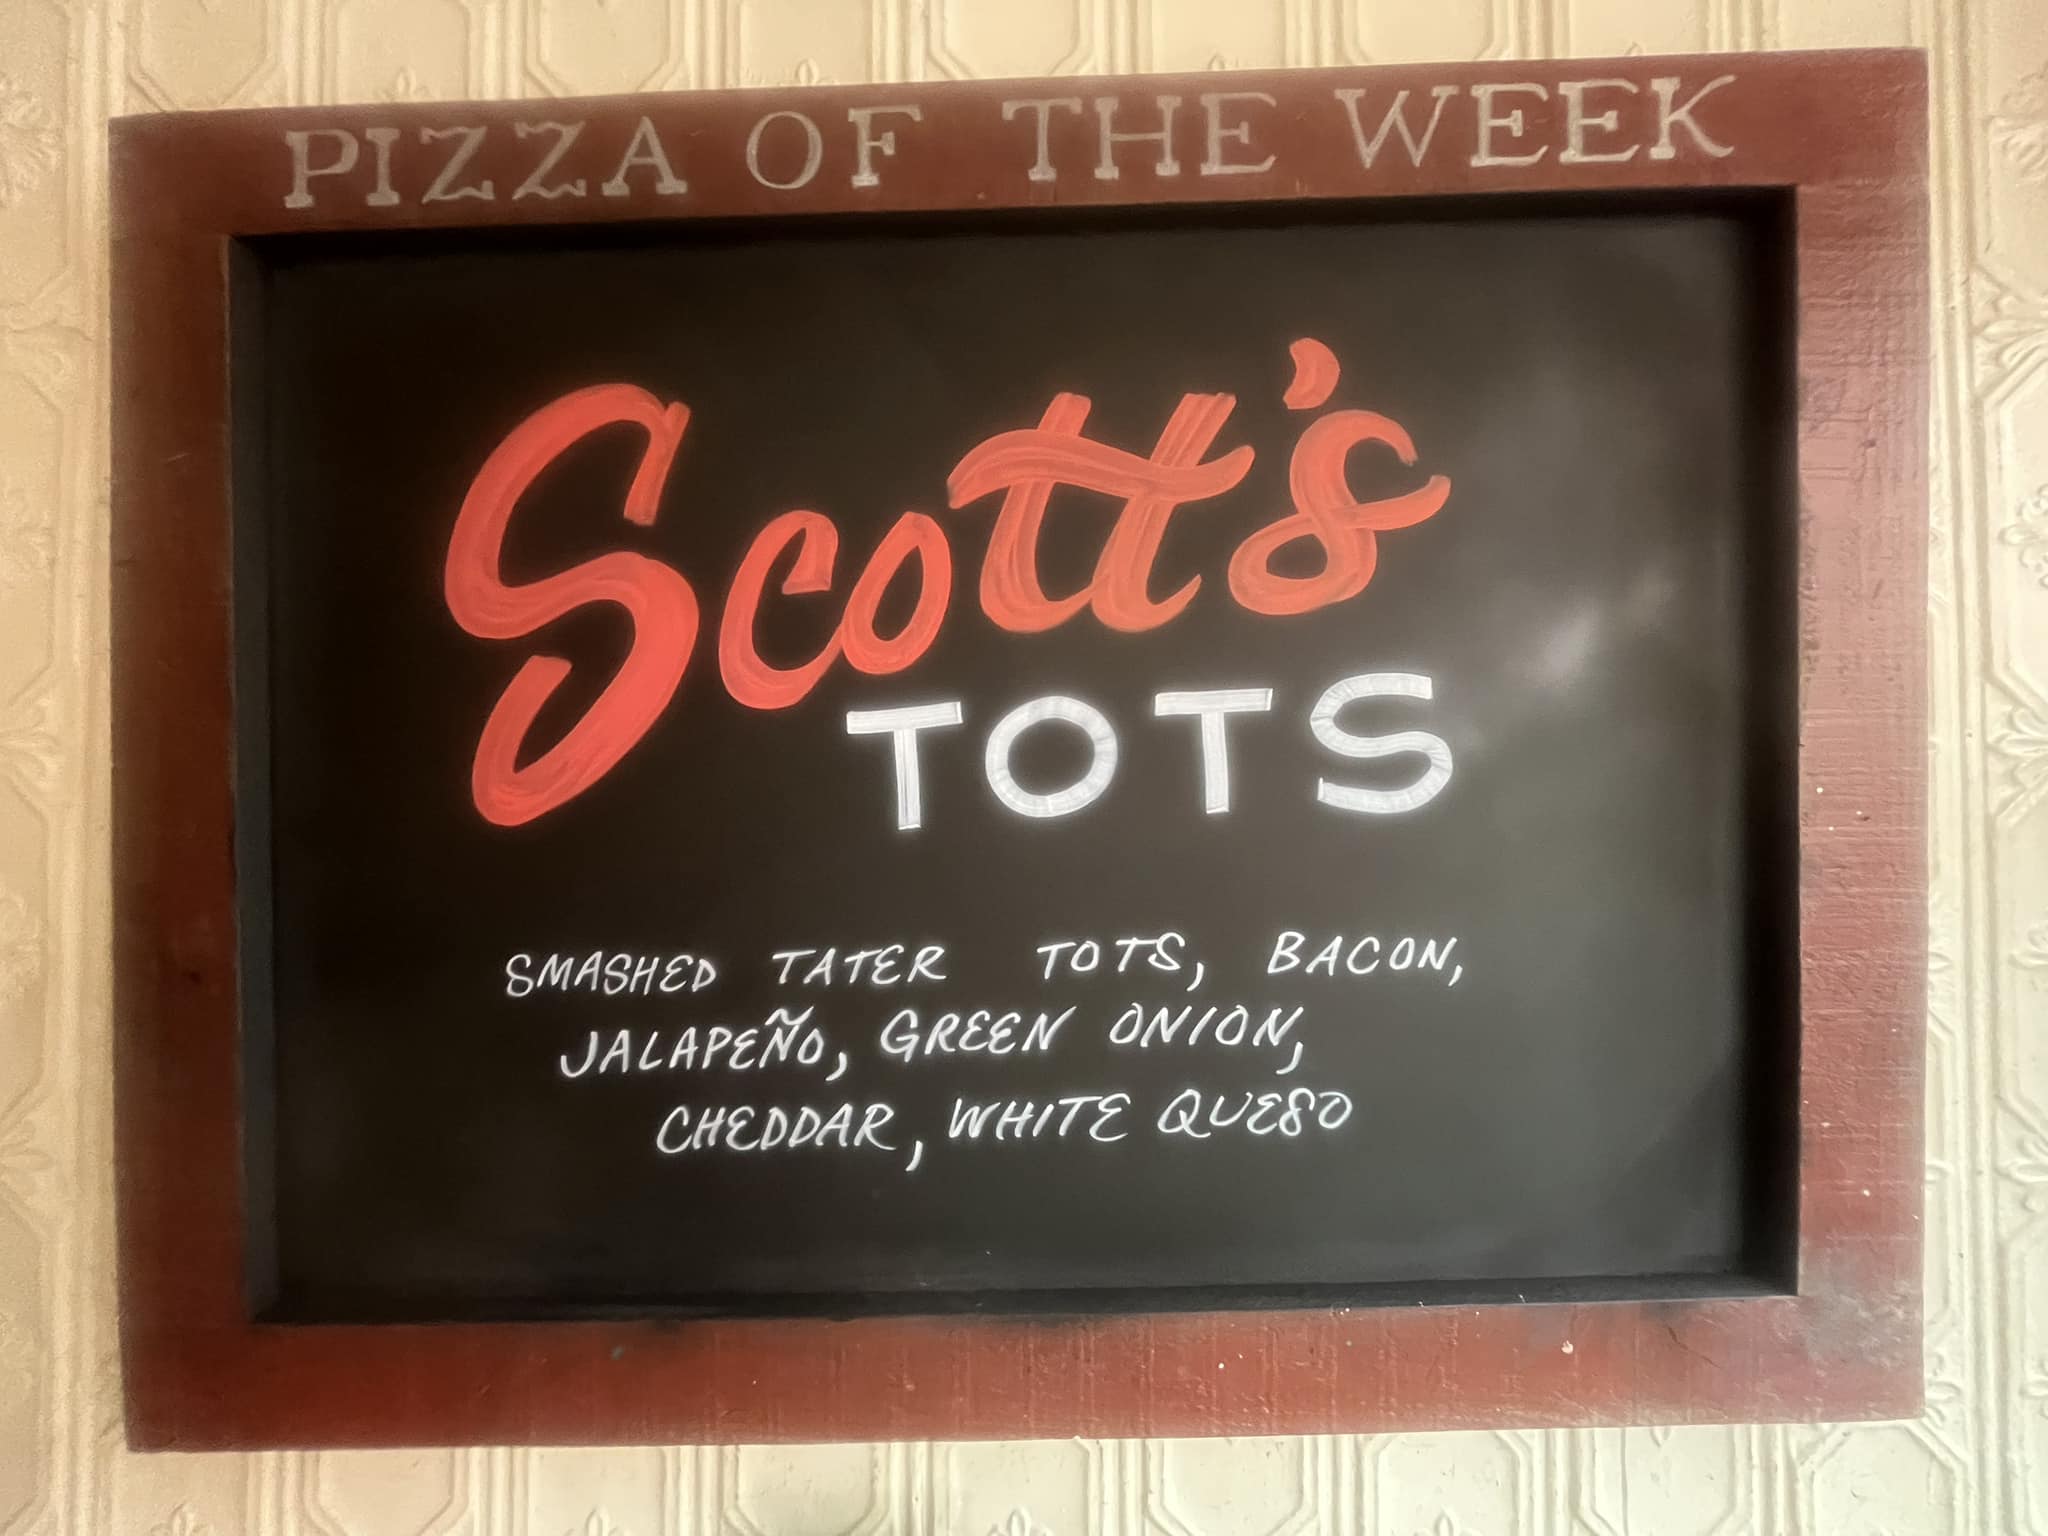 PIZZA OF THE WEEK
Scott's
TOTS
SMASHED TATER TOTS, BACON,
JALAPEÑO, GREEN ONION,
CHEDDAR, WHITE QUESO